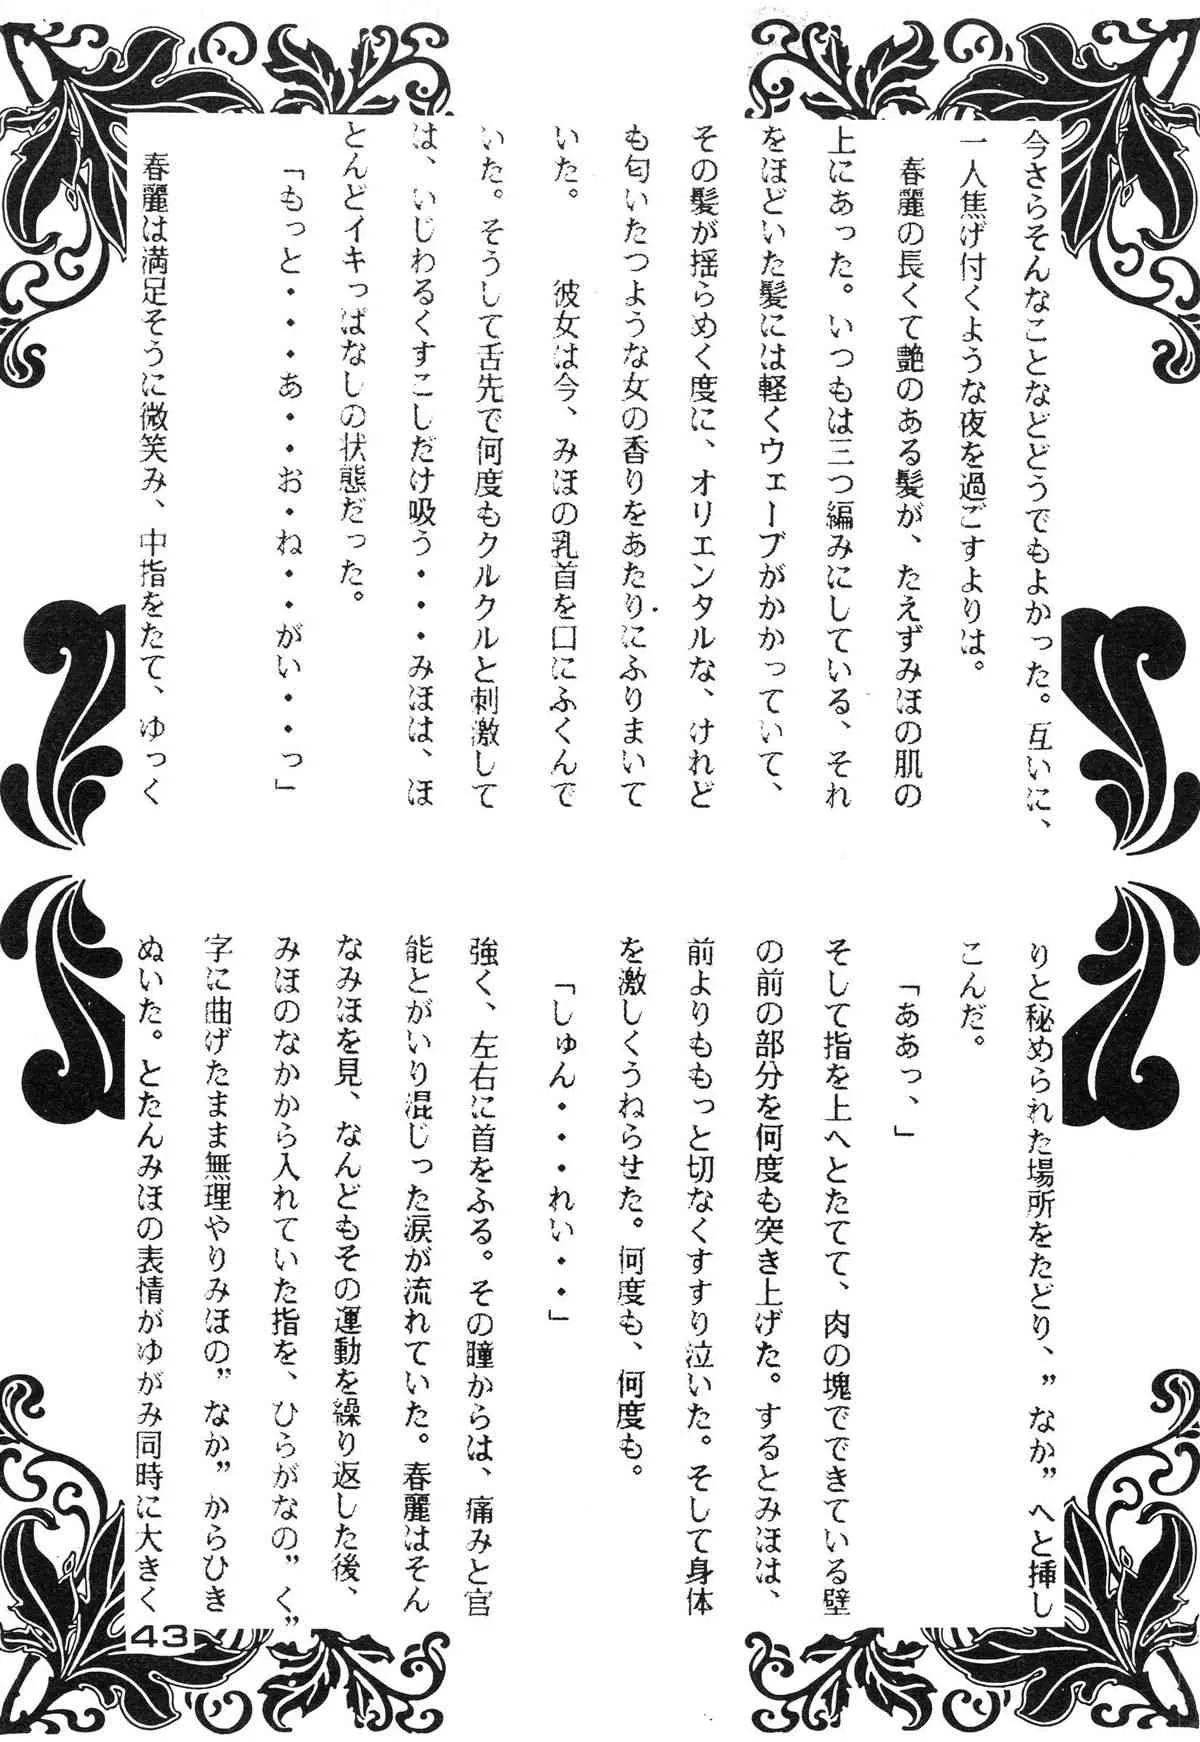 今さらそんなことなどどうでもよかった。互いに、
一人焦げ付くような夜を過ごすよりは。
春麗の長くて艶のある髪が、たえずみほの肌の
上にあった。いつもは三つ編みにしている、それ
をほどいた髪には軽くウェーブがかかっていて、
その髪が揺らめく度に、オリエンタルな、けれど
も匂いたつような女の香りをあたりにふりまいて
いた。　　彼女は今、みほの乳首を口にふくんで
いた。そうして舌先で何度もクルクルと刺激して
は、いじわるくすこしだけ吸う・・・みほは、ほ
とんどイキっぱなしの状態だった。
「もっと・・・あ・・お・ね・・がい・・っ」
春麗は満足そうに微笑み、中指をたて、ゆっく
りと秘められた場所をたどり、”なか”へと挿し
こんだ。
「ああっ、」
そして指を上へとたてて、肉の塊でできている壁
の前の部分を何度も突き上げた。するとみほは、
前よりももっと切なくすすり泣いた。そして身体
を激しくうねらせた。何度も、何度も。
「しゅん・・・れい・・」
強く、左右に首をふる。その瞳からは、痛みと官
能とがいり混じった涙が流れていた。春麗はそん
なみほを見、なんどもその運動を繰り返した後、
みほのなかから入れていた指を、ひらがなの”く”
字に曲げたまま無理やりみほの”なか”からひき
ぬいた。とたんみほの表情がゆがみ同時に大きく
43